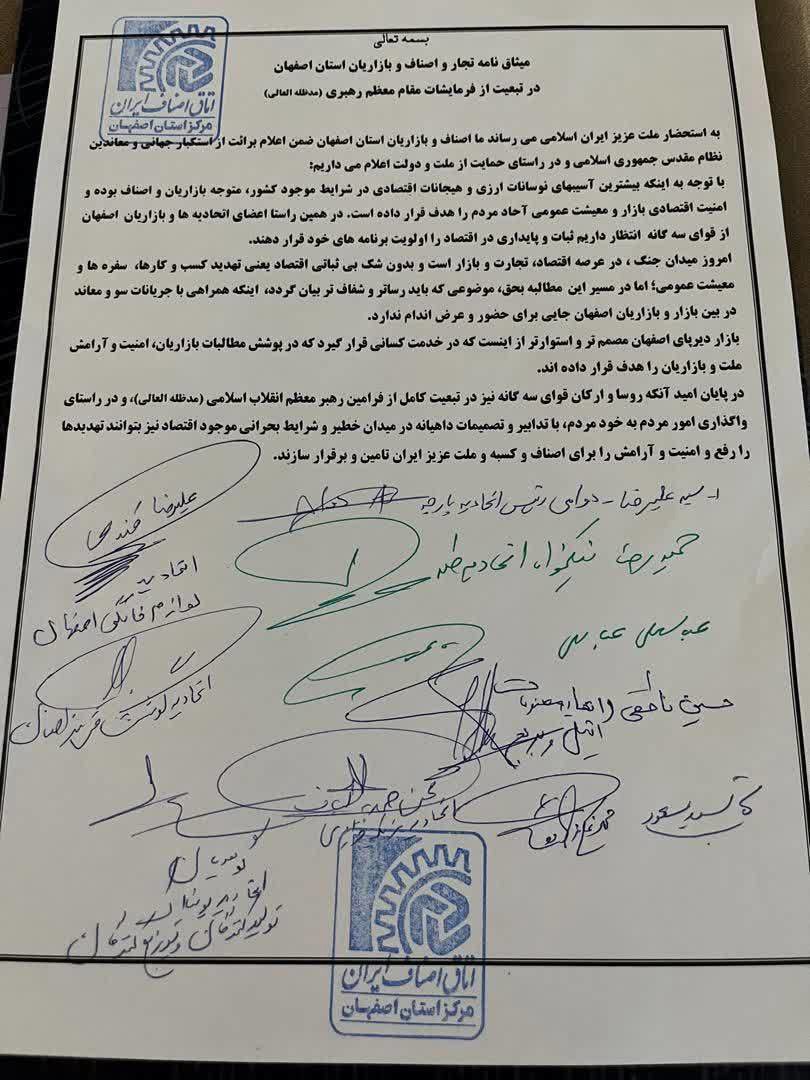 بسمه تعالی
میثاق نامه تجار و اصناف و بازاریان استان اصفهان
در تبعیت از فرمایشات مقام معظم رهبری (مدظله العالی)
اتاق اصناف ایران
مرکز استان اصفهان
به استحضار ملت عزیز ایران اسلامی می رساند ما اصناف و بازاریان استان اصفهان ضمن اعلام برائت از استکبار جهانی و معاندین
نظام مقدس جمهوری اسلامی و در راستای حمایت از ملت و دولت اعلام می داریم:
با توجه به اینکه بیشترین آسیبهای نوسانات ارزی و هیجانات اقتصادی در شرایط موجود کشور، متوجه بازاریان و اصناف بوده و
امنیت اقتصادی بازار و معیشت عمومی آحاد مردم را هدف قرار داده است. در همین راستا اعضای اتحادیه ها و بازاریان اصفهان
از قوای سه گانه انتظار داریم ثبات و پایداری در اقتصاد را اولویت برنامه های خود قرار دهند.
امروز میدان جنگ ، در عرصه اقتصاد، تجارت و بازار است و بدون شک بی ثباتی اقتصاد یعنی تهدید کسب و کارها، سفره ها و
معیشت عمومی؛ اما در مسیر این مطالبه بحق، موضوعی که باید رساتر و شفاف تر بیان گردد، اینکه همراهی با جریانات سو و معاند
در بین بازار و بازاریان اصفهان جایی برای حضور و عرض اندام ندارد.
بازار دیرپای اصفهان مصمم تر و استوارتر از اینست که در خدمت کسانی قرار گیرد که در پوشش مطالبات بازاریان، امنیت و آرامش
ملت و بازاریان را هدف قرار داده اند.
در پایان امید آنکه روسا و ارکان قوای سه گانه نیز در تبعیت کامل از فرامین رهبر معظم انقلاب اسلامی (مدظله العالی)، و در راستای
واگذاری امور مردم به خود مردم، با تدابیر و تصمیمات داهیانه در میدان خطیر و شرایط بحرانی موجود اقتصاد نیز بتوانند تهدیدها
را رفع و امنیت و آرامش را برای اصناف و کسبه و ملت عزیز ایران تامین و برقرار سازند.
۱- سید علیرضا - دوامی رئیس اتحادیه پارچه
علیرضا
حمیدرضا نیکخواه اتحادیه طلا
اتحادیه
لوازم خانگی اصفهان
عباسعلی عباسی
اتحادیه گوشت
حسین
اتحادیه
سید مسعود
تولیدکنندگان و توزیع کنندگان
اتاق اصناف ایران
مرکز استان اصفهان